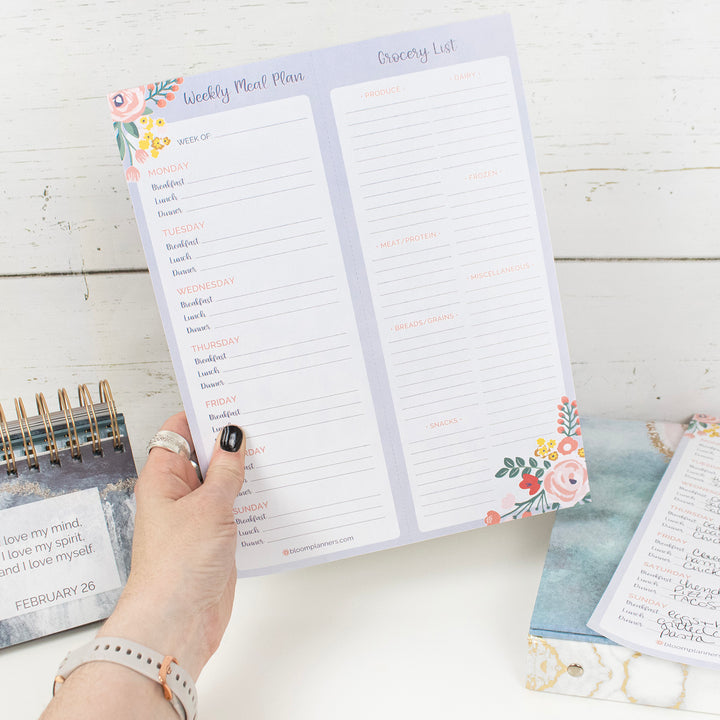 Weekly Meal Plan
WEEK OF
MONDAY
Breakfast
Lunch
Dinner
TUESDAY
Breakfast
Lunch
Dinner
WEDNESDAY
Breakfast
Lunch
Dinner
THURSDAY
Breakfast
Lunch
Dinner
FRIDAY
Breakfast
SUNDAY
Breakfast
Lunch
Dinner
@bloomplanners.com
Grocery List
- PRODUCE -
- DAIRY -
- FROZEN -
- MEAT/PROTEIN -
- MISCELLANEOUS -
- BREADS/GRAINS -
- SNACKS -
love my mind,
I love my spirit,
and I love myself.
FEBRUARY 26
Lunch
Dinner
THURSDAY
Breakfast
Lunch
Dinner
FRIDAY
Breakfast
Lunch
Dinner
SATURDAY
Breakfast
Lunch PIZZA
Dinner TACOS
SUNDAY
Breakfast eggs
Lunch grilled
Dinner pasta
@bloomplanners